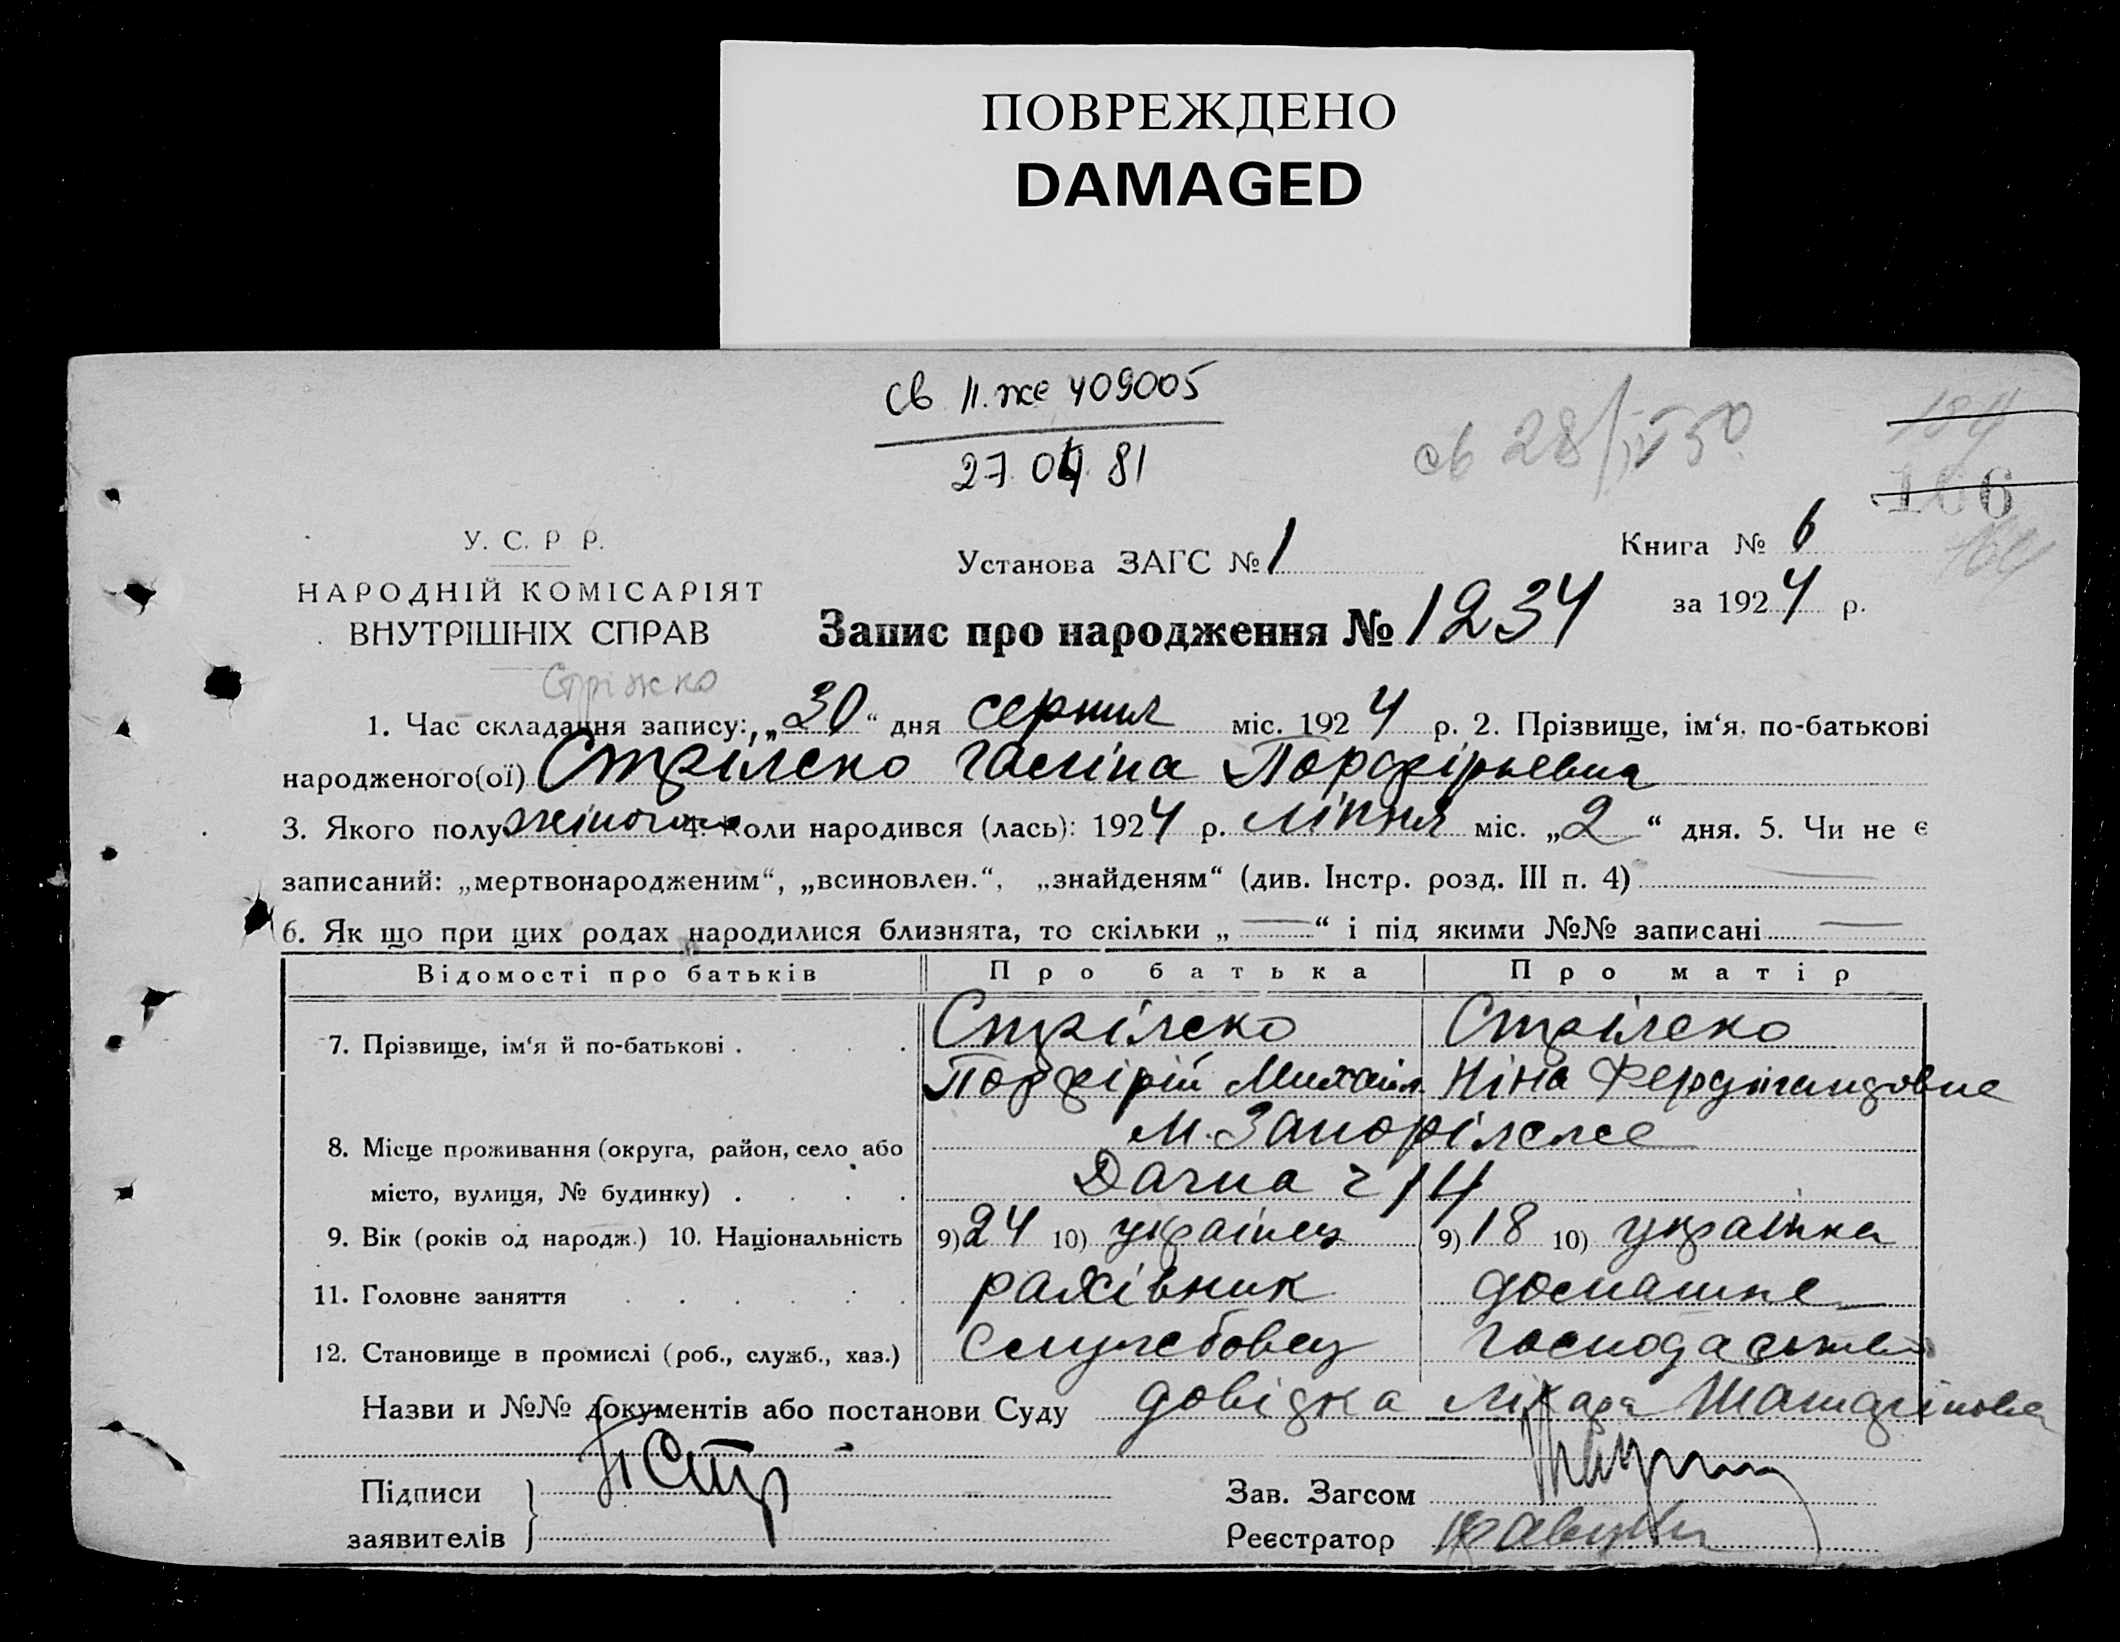 ПОВРЕЖДЕНО
DAMAGED
св II. же 409005
27. 04. 81
св 28/IV 50
184
166
164
У. С. Р Р.
НАРОДНІЙ КОМІСАРІЯТ
ВНУТРІШНІХ СПРАВ
Установа ЗАГС № 1
Книга № 6
за 1924 р.
Запис про народження № 1234
Стріжко
1. Час складання запису: „30“ дня серпня міс. 1924 р. 2. Прізвище, ім‘я, по-батькові
народженого(ої) Стріжко Галіна Порфірьевна
3. Якого полу жіночого 4. Коли народився (лась): 1924 р. ліпня міс. „2“ дня. 5. Чи не є
записаний: „мертвонародженим“, „всиновлен.“, „знайденям“ (див. Інстр. розд. III п. 4) —
6. Як що при цих родах народилися близнята, то скільки „—“ і під якими №№ записані —
Відомості про батьків Про батька Про матір
7. Прізвище, ім‘я й по-батькові . . . . Стріжко Стріжко
Порфірій Михайл. Ніна Фердінандовна
8. Місце проживання (округа, район, село або м. Запоріжже
місто, вулиця, № будинку) . . . . Дачна 14
9. Вік (років од народж.) 10. Національність 9) 24 10) українец 9) 18 10) українка
11. Головне заняття . . . . . . рахівник домашне
12. Становище в промислі (роб., служб., хаз.) Служебовец господарство
Назви и №№ документів або постанови Суду довідка лікара
Підписи
заявителів
П Стр
Зав. Загсом
Реєстратор